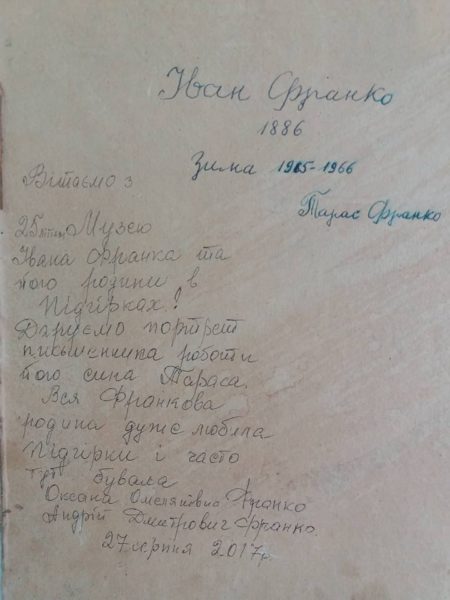 Іван Франко
1886
Зима 1965-1966
Тарас Франко
Вітаємо з
25літтям Музею
Івана Франка та
його родини в
Підгірках!
Даруємо портрет
письменника роботи
його сина Тараса.
Вся Франкова
родина дуже любила
Підгірки і часто
тут бувала
Оксана Омелянівна Франко
Андрій Дмитрович Франко.
27 серпня 2017р.